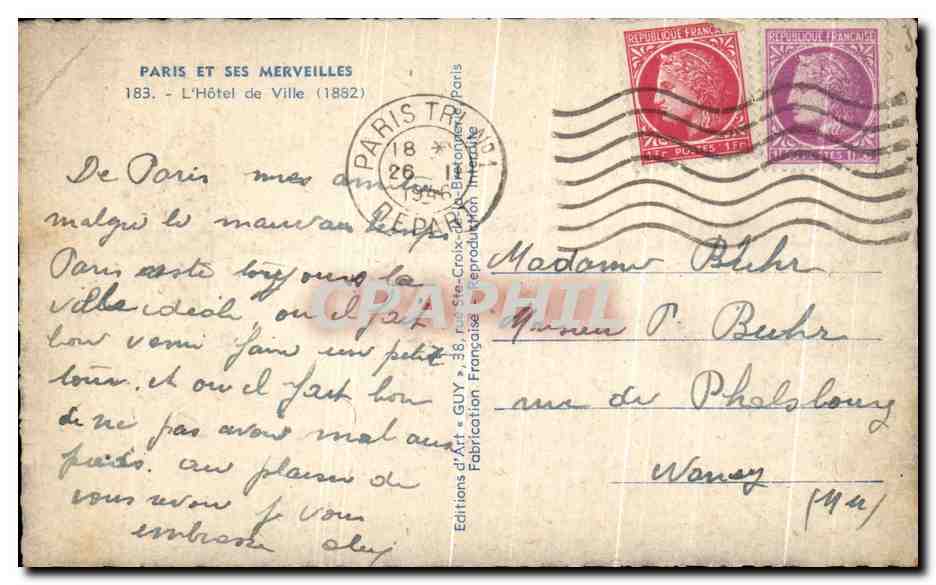 PARIS ET SES MERVEILLES
183. - L'Hôtel de Ville (1882)
PARIS TRI No1
18
26 II
1946
DEPART
REPUBLIQUE FRANÇAISE
1 Fr POSTES 1 Fr
REPUBLIQUE FRANÇAISE
De Paris mes amitiés
malgré le mauvais temps
Paris reste toujours la
ville idéale où il fait
bon venir faire un petit
tour. et où il fait bon
de ne pas avoir mal aux
pieds. au plaisir de
vous revoir je vous
embrasse
Editions d'Art « GUY », 38, rue Ste-Croix-de-la-Bretonnerie, Paris
Fabrication Française - Reproduction Interdite
Madame Buhr
Monsieur P. Buhr
rue de Phalsbourg
Nancy
(M M)
CPAPHIL